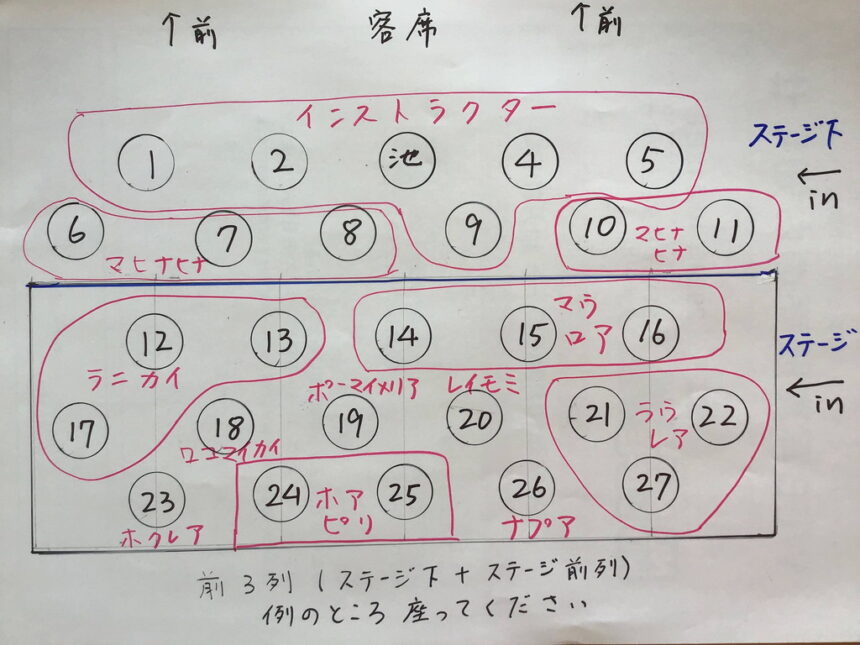 ↑前 客席 ↑前
インストラクター
1 2 池 4 5
ステージ下
← in
6 7 8 9 10 11
マヒナヒナ
マヒナ
ヒナ
12 13 14 15 16
マウ
ロア
ステージ
← in
ラニカイ
ポーマイメリア
レイモミ
17 18 19 20 21 22
ラウ
レア
ロコマイカイ
23 24 25 26 27
ホア
ピリ
ホクレア
ナプア
前3列(ステージ下+ステージ前列)
例のところ座ってください